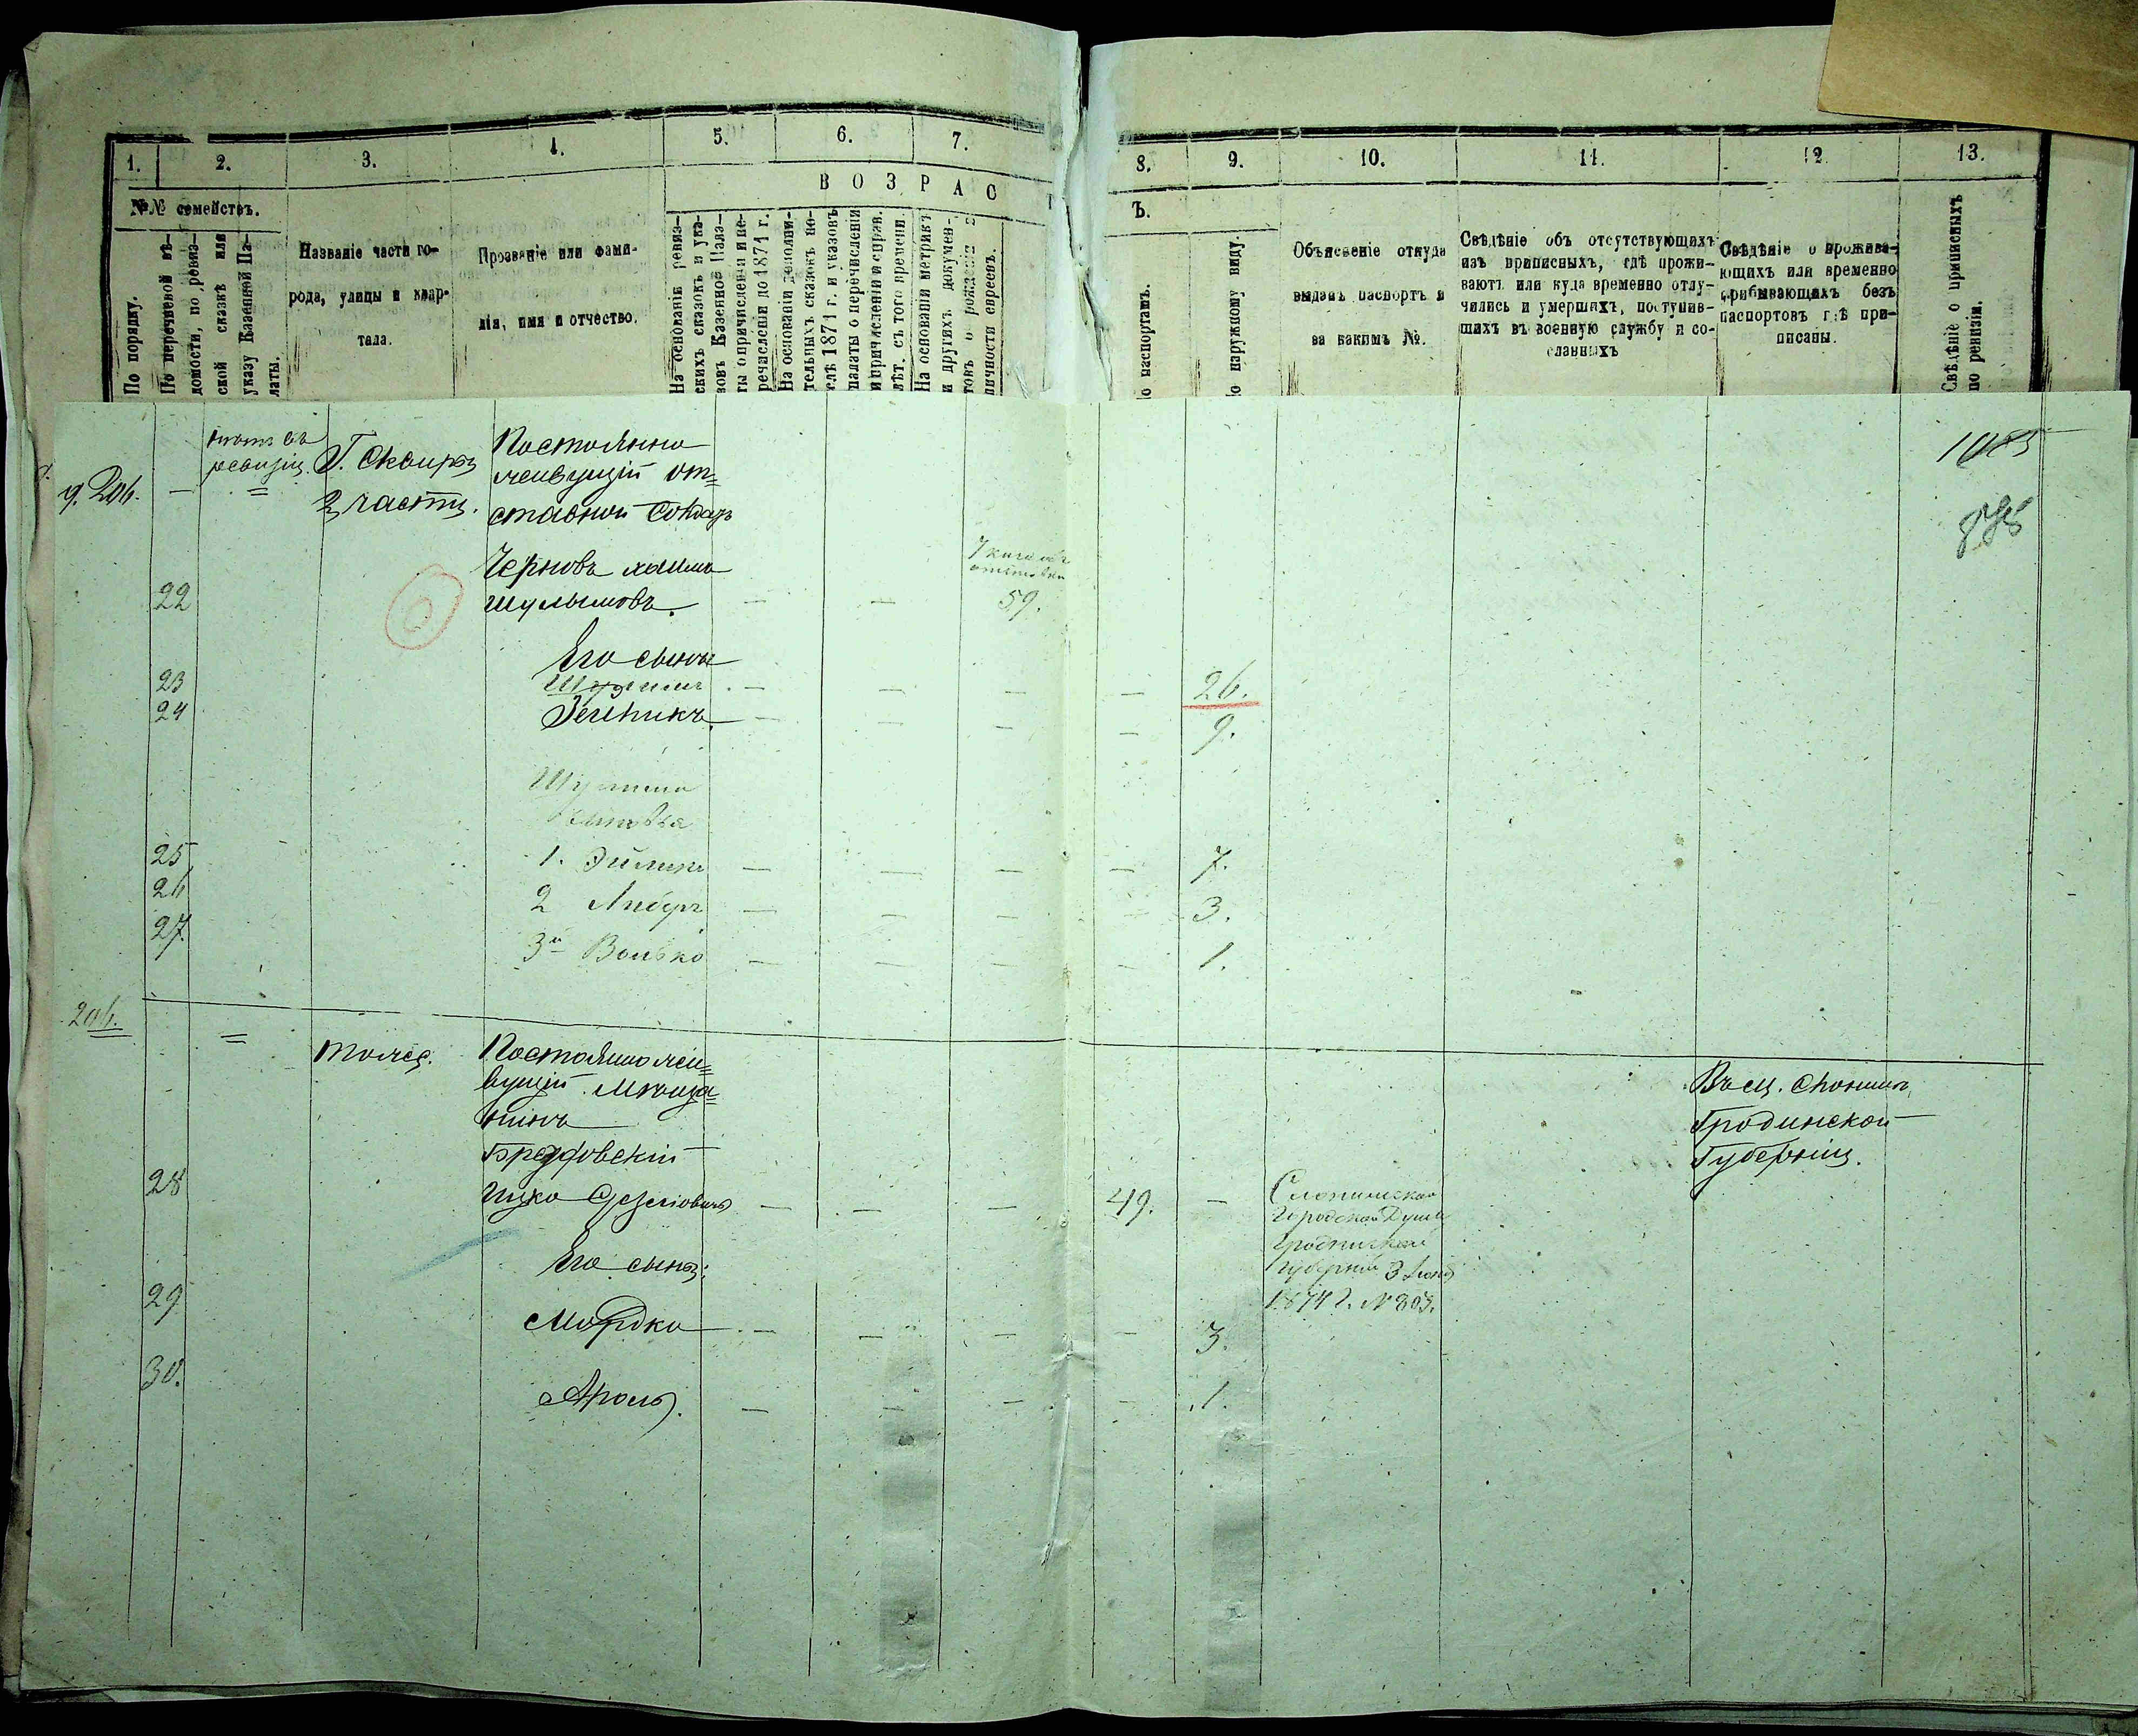 1.
2.
3.
4.
5.
6.
7.
8.
9.
10.
11.
12
13.
№№ семействъ.
ВОЗРАС
Ъ.
По порядку.
По перечневой вѣ-
домости, по ревиз-
ской сказкѣ или
указу Казенной Па-
латы.
Названіе части го-
рода, улицы и квар-
тала.
Прозваніе или фами-
лія, имя и отчество.
На основаніи ревиз-
скихъ сказокъ и ука-
зовъ Казенной Пала-
ты о причисленіи и пе-
речисленіи до 1871 г.
На основаніи дополни-
тельныхъ сказокъ по-
слѣ 1871 г. и указовъ
палаты о перечисленіи
и причисленіи и прав.
лѣт. съ того времени.
На основаніи метрикъ
и другихъ докумен-
товъ о рожденіи и
личности евреевъ.
о паспортамъ.
о наружному виду.
Объясненіе откуда
выданъ паспортъ и
за какимъ №.
Свѣдѣніе объ отсутствующихъ
изъ приписныхъ, гдѣ прожи-
ваютъ или куда временно отлу-
чились и умершихъ, поступив-
шихъ въ военную службу и со-
сланныхъ
Свѣдѣніе о прожива-
ющихъ или временно
прибывающихъ безъ
паспортовъ гдѣ при-
писаны.
Свѣдѣніе о приписныхъ
по ревизіи.
1085
ревизіи.
Г. Сквира
2 части.
Постоянно
живущій от=
ставной Солдатъ
Черновъ Хаимъ
Шулымовъ.
22
59.
Его сыны
23
Шулимъ
26.
24
Зелникъ
9.
Шулима
25
1. Эйликъ
7.
26
2 Либеръ
3.
27.
3й Волько
1.
206.
тоже.
Постоянно жи=
вущій Мѣща=
нинъ
28
Ицко
49.
Слонимской
Городской Думы
Гродненской
Губерніи 3 Іюня
1874 г. № 803.
Гродненской
Губерніи.
Его сыны:
29
Мордко
3.
30.
Аронъ.
1.